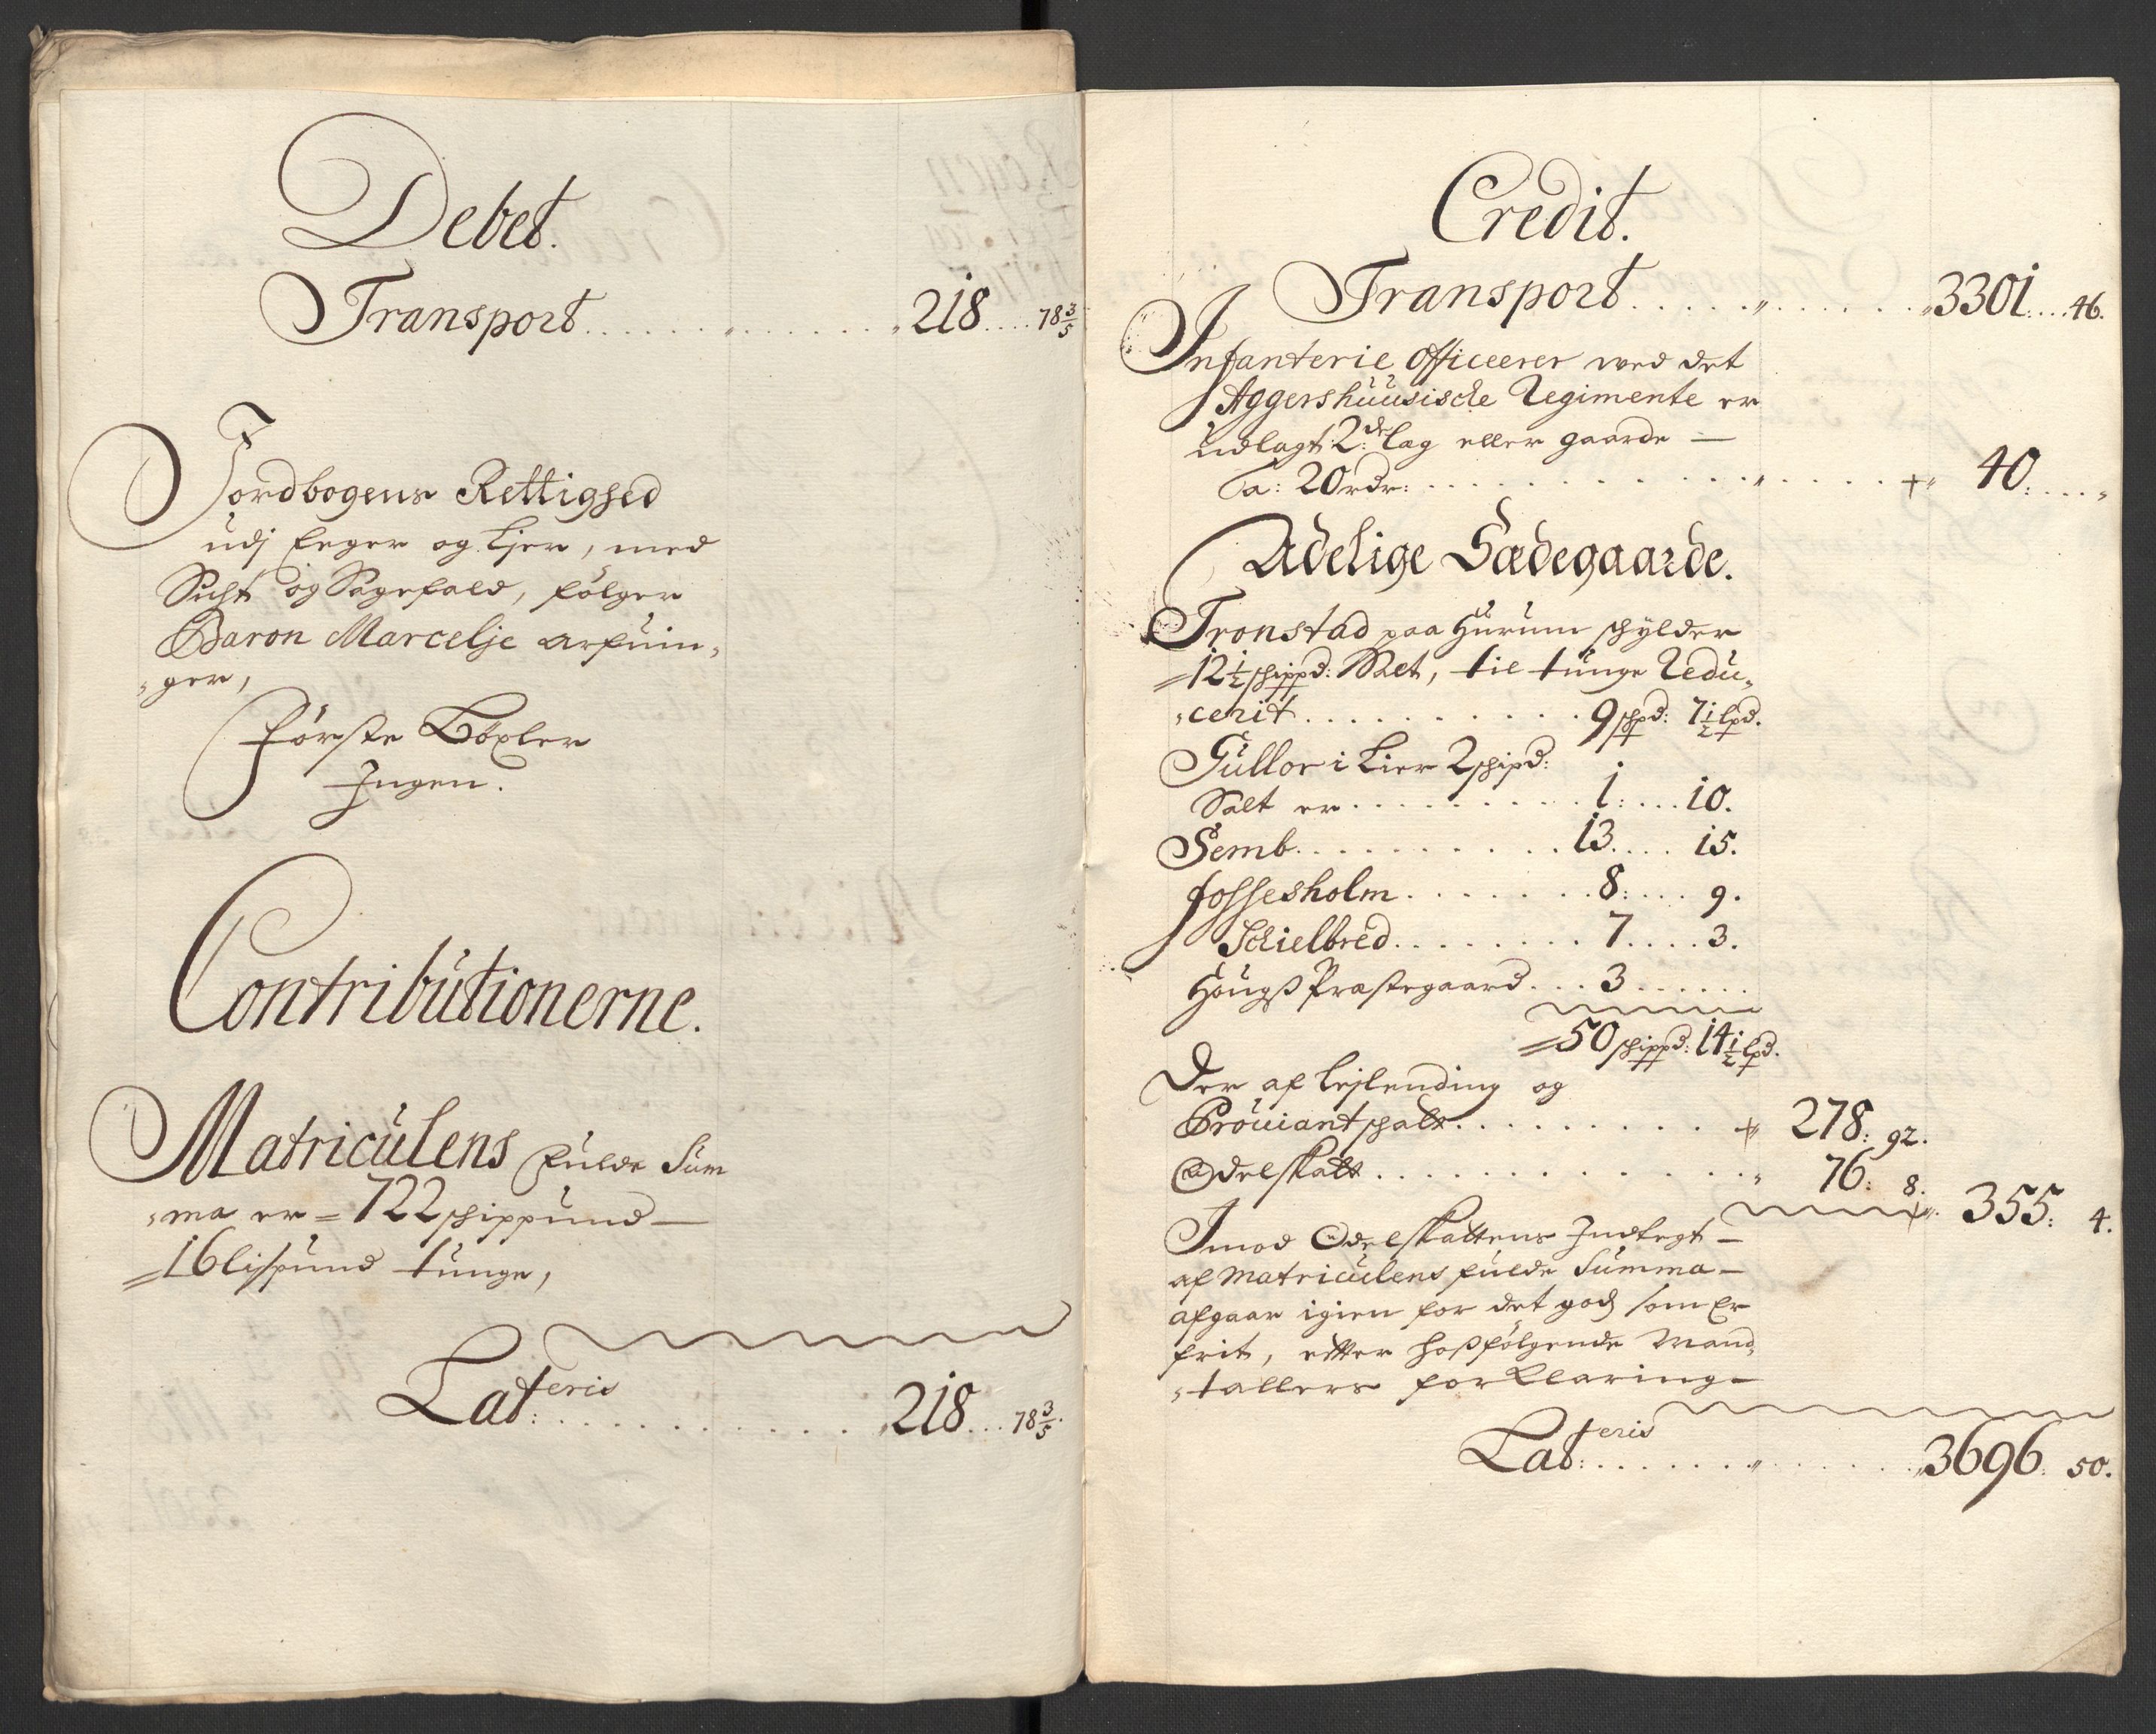 Debet.
Transport . . . . . . . . . . . . . 218 . . . . 78 3/5
Jordbogens Rettighed
udj Eger og Lier, med
Sicht og Sagefald, følger
Baron Marcelje arfuin„
„ger,
Førster Böxler
Ingen.
Contributionerne.
Matriculens fulde Sum
„ma er = 722 schippund —
= 16 lispund tunge,
Lat:eris . . . . . . . . . . . . 218 . . . 78 3/5.
Credit.
Transport . . . . . „ . . . . . . „3301: . . . 46.
Infanterie Officerer wed det
Aggershuusische Regimente er
udlagt 2:de læg eller gaarde —
a: 20 rdr: . . . . . . . . . . . . „ . . . . . +„ 40: . . . . „
Adelige Sædegaarde.
Tronstad paa Hurum schylder
= 12 1/2 schippd: Salt, til tunge Redu„
„cerit . . . . . . . . . . . 9 schpd: 7 1/2 lpd.
Gullov i Lier 2 schipd:
Salt er . . . . . . . . . 1: . . . 10.
Semb . . . . . . . . . . . 13. . . . 15.
Fossesholm . . . . . . . . 8: . . . 9.
Schielbred . . . . . . . . 7 . . . . 3.
Hougs Præstegaard . . . 3 . . . . . .
= 50 schippd: 14 1/2 lpd.
Der af Lejlending og
Proviant schatt . . . . . . . . . +„ 278: 92.
Odelskatt . . . . . . . . . . . . . „ 76: 8.
+„ 355: 4.
Imod Odelskattens Indtegt —
af Matriculens fulde Summa —
afgaar igien for det gods som Er
frit, effter hosfølgende Mand„
„tallers forklaring —
Lat:eris . . . . . . . „ . . . . . . „3696: 50.